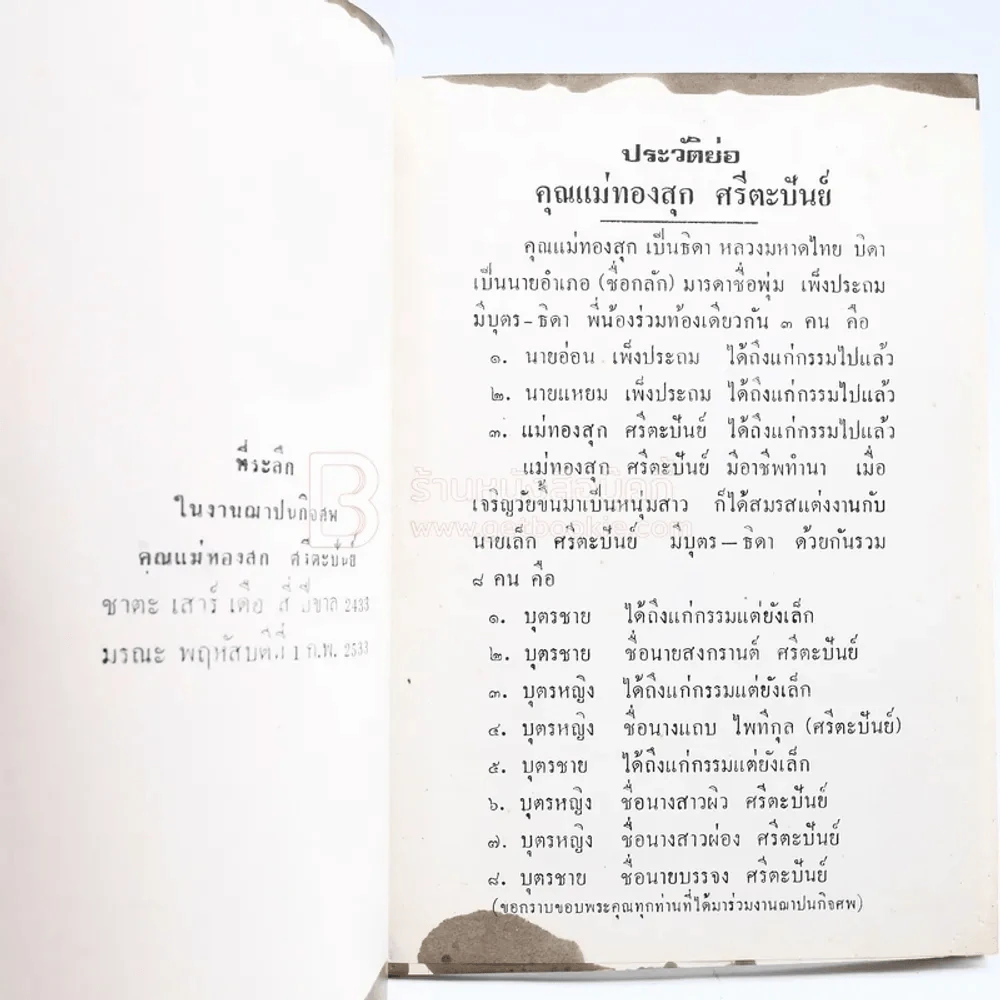 ที่ระลึก
ในงานฌาปนกิจศพ
คุณแม่ทองสุก ศรีตะปันย์
ชาตะ เสาร์ เดือน สี่ ปีขาล 2433
มรณะ พฤหัสบดีที่ 1 ก.พ. 2533
ประวัติย่อ
คุณแม่ทองสุก ศรีตะปันย์
คุณแม่ทองสุก เป็นธิดา หลวงมหาดไทย บิดา
เป็นนายอำเภอ (ชื่อกลัก) มารดาชื่อพุ่ม เพ็งประถม
มีบุตร-ธิดา พี่น้องร่วมท้องเดียวกัน ๓ คน คือ
๑. นายอ่อน เพ็งประถม ได้ถึงแก่กรรมไปแล้ว
๒. นายแหยม เพ็งประถม ได้ถึงแก่กรรมไปแล้ว
๓. แม่ทองสุก ศรีตะปันย์ ได้ถึงแก่กรรมไปแล้ว
แม่ทองสุก ศรีตะปันย์ มีอาชีพทำนา เมื่อ
เจริญวัยขึ้นมาเป็นหนุ่มสาว ก็ได้สมรสแต่งงานกับ
นายเล็ก ศรีตะปันย์ มีบุตร-ธิดา ด้วยกันรวม
๘ คน คือ
๑. บุตรชาย ได้ถึงแก่กรรมแต่ยังเล็ก
๒. บุตรชาย ชื่อนายสงกรานต์ ศรีตะปันย์
๓. บุตรหญิง ได้ถึงแก่กรรมแต่ยังเล็ก
๔. บุตรหญิง ชื่อนางแถบ ไพทีกุล (ศรีตะปันย์)
๕. บุตรชาย ได้ถึงแก่กรรมแต่ยังเล็ก
๖. บุตรหญิง ชื่อนางสาวผิว ศรีตะปันย์
๗. บุตรหญิง ชื่อนางสาวผ่อง ศรีตะปันย์
๘. บุตรชาย ชื่อนายบรรจง ศรีตะปันย์
(ขอกราบขอบพระคุณทุกท่านที่ได้มาร่วมงานฌาปนกิจศพ)
ร้านหนังสือบุ๊คกี้
www.getbookie.com